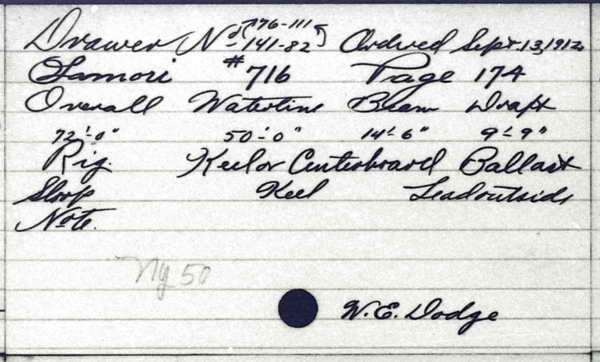 Drawer No [176-111 141-82] Ordered Sept. 13, 1912
Samuri #716 Page 174
Overall Waterline Beam Draft
72'-0" 50'-0" 14'-6" 9'-9"
Rig. Keel or Centerboard Ballast
Sloop Keel Lead outside
Note.
NY 50
W. E. Dodge